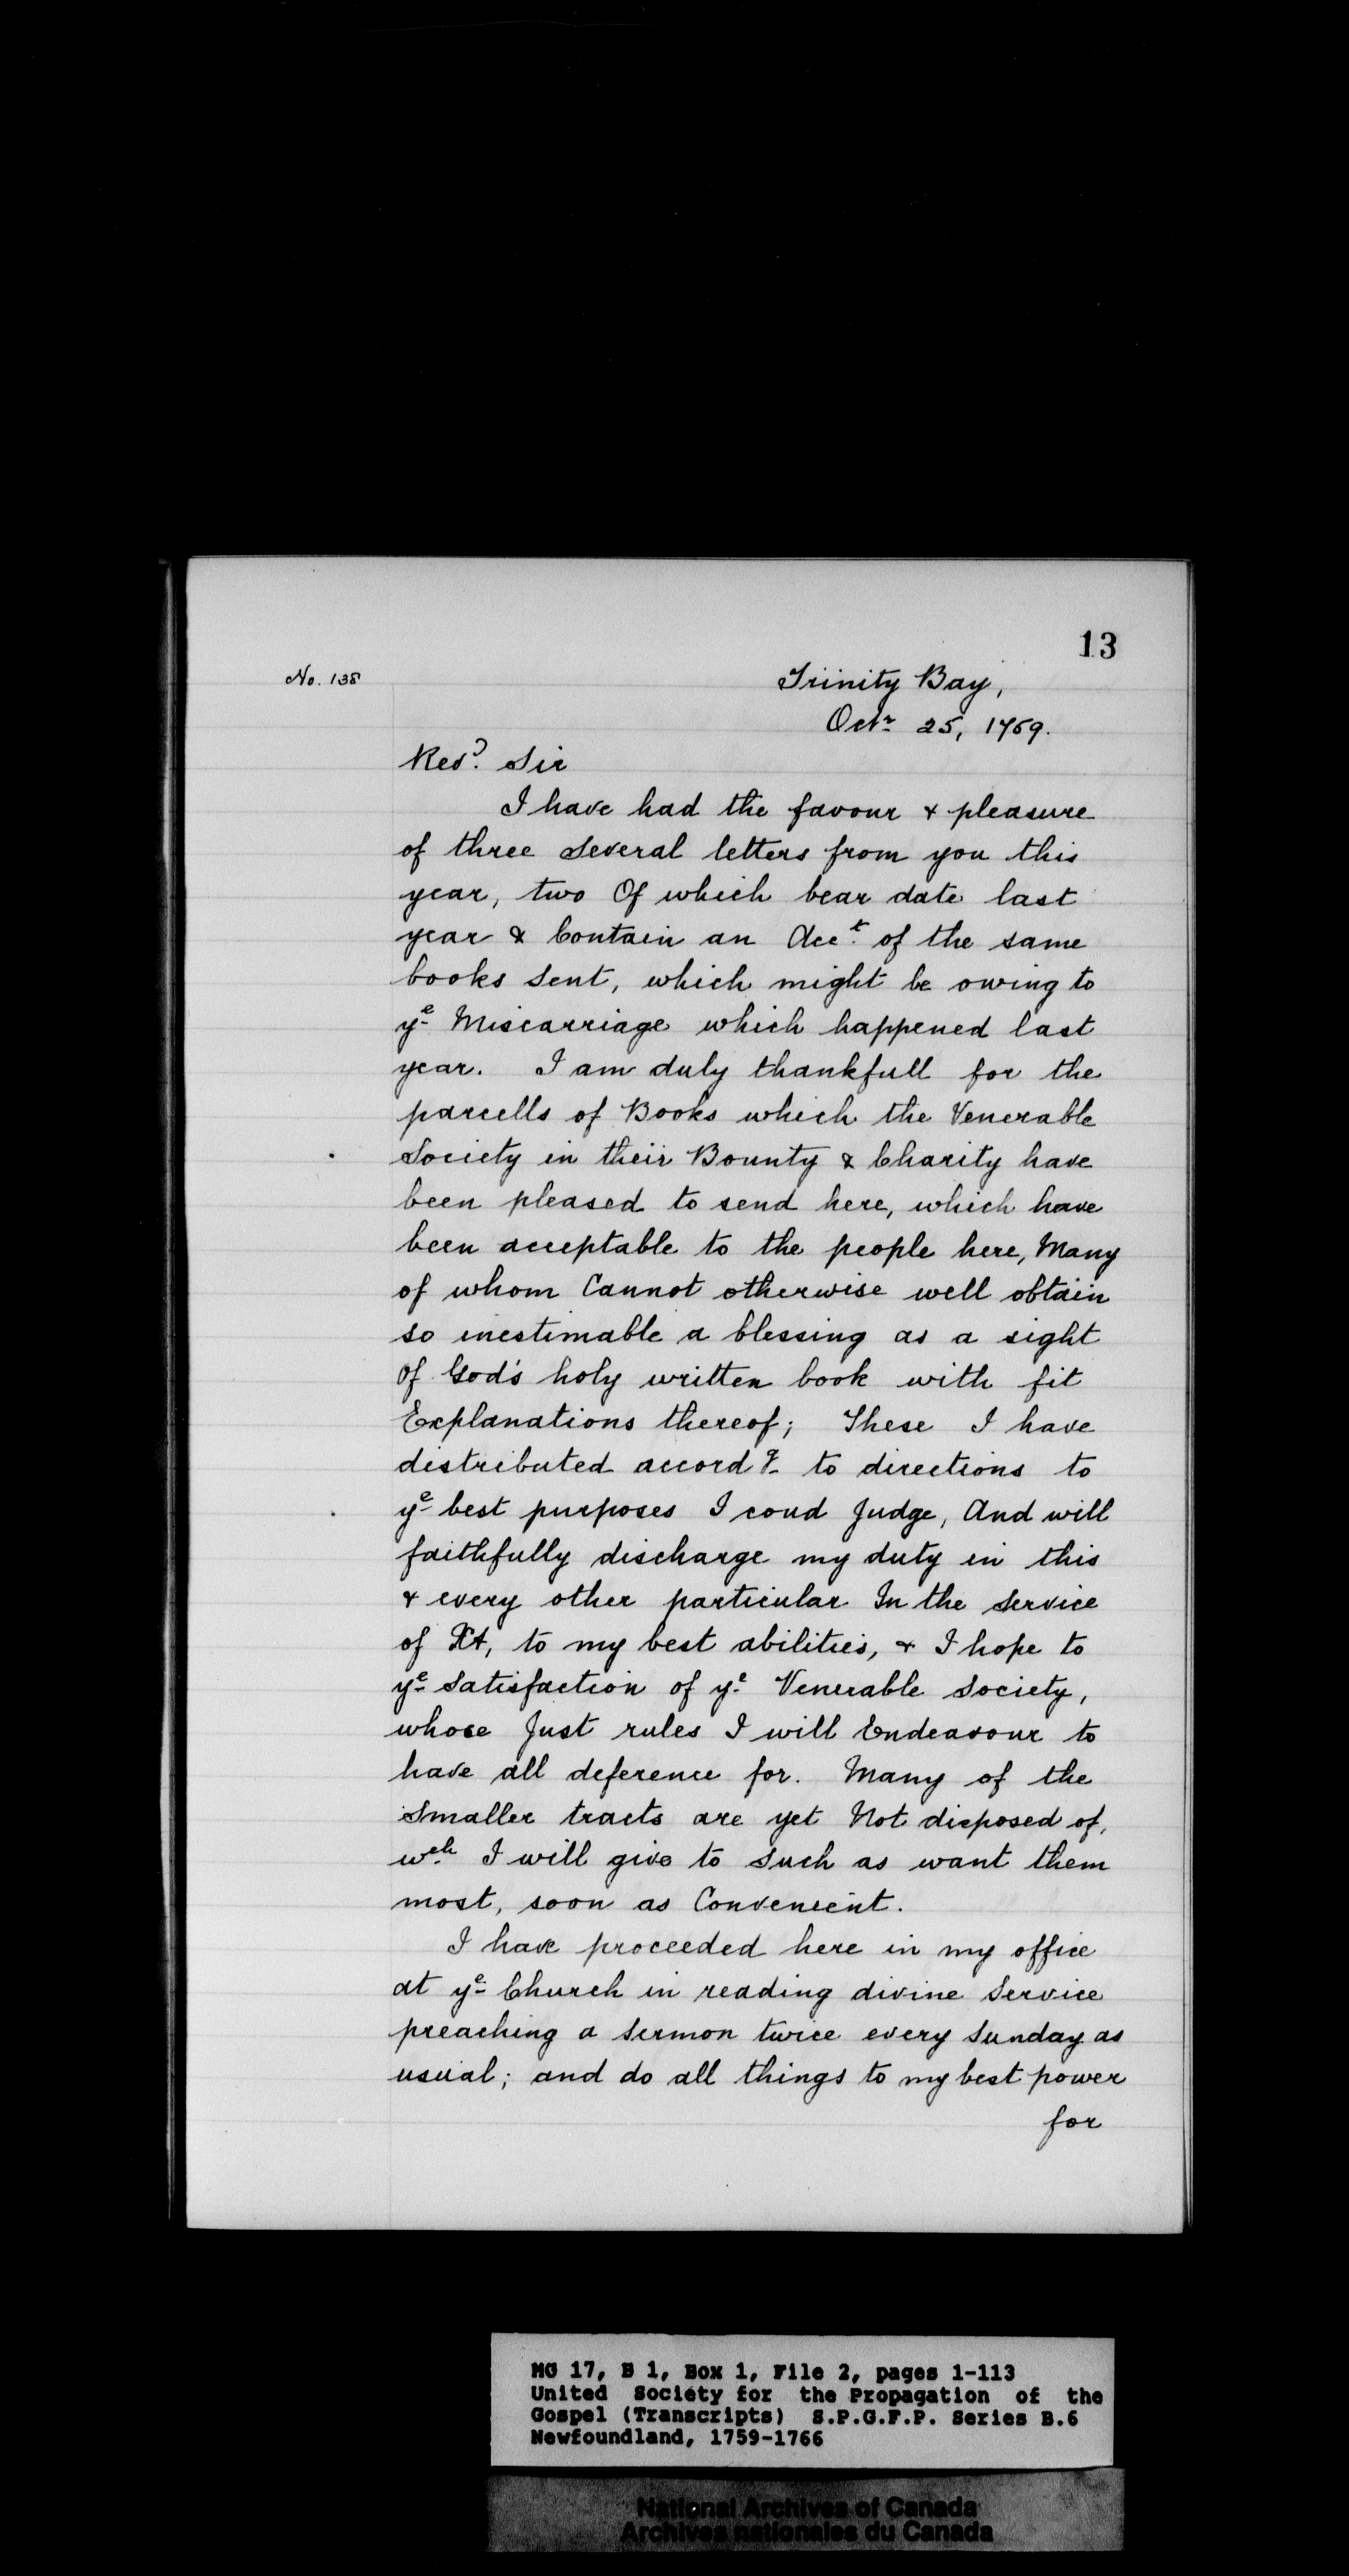 13
No. 138
Trinity Bay,
Octr 25, 1759.
Revd. Sir
I have had the favour & pleasure
of three several letters from you this
year, two Of which bear date last
year & Contain an Acct. of the same
books sent, which might be owing to
ye Miscarriage which happened last
year. I am duly thankfull for the
parcells of Books which the Venerable
Society in their Bounty & Charity have
been pleased to send here, which have
been acceptable to the people here, Many
of whom Cannot otherwise well obtain
so inestimable a blessing as a sight
of God's holy written book with fit
Explanations thereof; These I have
distributed accordg to directions to
ye best purposes I coud Judge, And will
faithfully discharge my duty in this
& every other particular In the Service
of Xt, to my best abilities, & I hope to
ye satisfaction of ye Venerable Society,
whose Just rules I will Endeavour to
have all deference for. Many of the
Smaller tracts are yet Not disposed of,
wch I will give to Such as want them
most, soon as Convenient.
I have proceeded here in my office
at ye Church in reading divine Service
preaching a Sermon twice every Sunday as
usual; and do all things to my best power
for
MG 17, B 1, Box 1, File 2, pages 1-113
United Society for the Propagation of the
Gospel (Transcripts) S.P.G.F.P. Series B.6
Newfoundland, 1759-1766
National Archives of Canada
Archives nationales du Canada